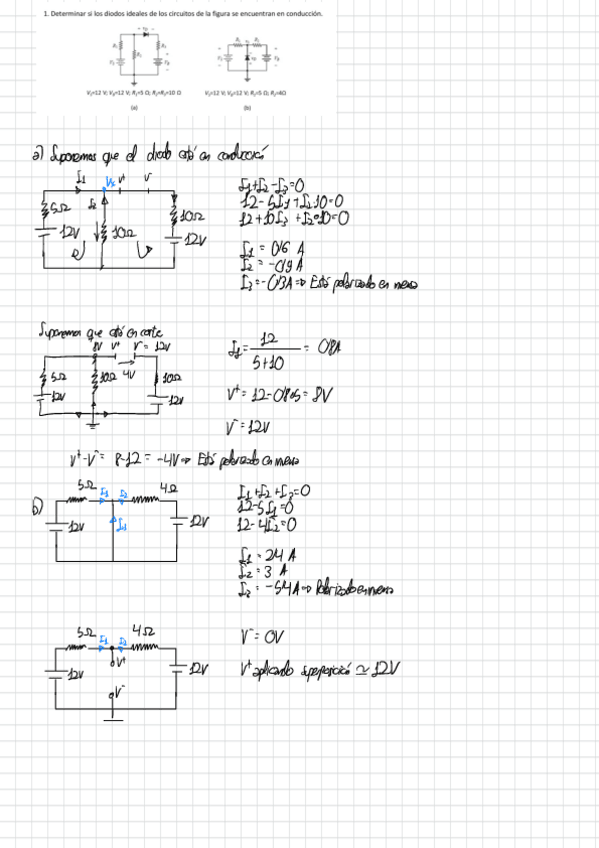 1. Determinar si los diodos ideales de los circuitos de la figura se encuentran en conducción.
V₁=12 V; V₂=12 V; R₁=5 Ω; R₂=R₃=10 Ω
V₁=12 V; V₂=12 V; R₁=5 Ω; R₂=4Ω
(a)
(b)
a) Suponemos que el diodo está en conducción
I1 Vx V+ V-
5Ω I2 10Ω
12V 10Ω 12V
I1+I2-I3=0
12-5I1+I2·10=0
I1 = 0'6 A
I2 = -0'9 A
I3=-0'3A => Está polarizado en inversa
Suponemos que está en corte
8V V+ V- = 12V
5Ω 10Ω 4V 10Ω
12V 12V
I1 = 12 / 5+10 = 0'8A
V+ = 12-0'8·5= 8V
V- = 12V
V+-V- = 8-12 = -4V => Está polarizado en inversa
b)
5Ω I1 I2 4Ω
12V I3 12V
I1+I2+I3=0
12-5I1=0
12-4I2=0
I1 = 2'4 A
I2 = 3 A
I3 = -5'4A => Polarizado en inversa
5Ω I1 I2 4Ω
12V V+ 12V
V-
V- = 0V
V+ aplicando superposición ≃ 12V